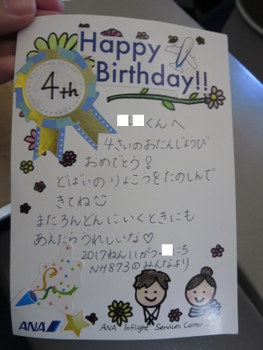 Happy
Birthday!!
4th
くんへ
4さいのおたんじょうび
おめでとう!
どばいのりょこうをたのしんで
きてね
またろんどんにいくときにも
あえたらうれしいな♡
2017ねん11がつ :5
NH873のみんなより
ANA
ANA Inflight Services Center